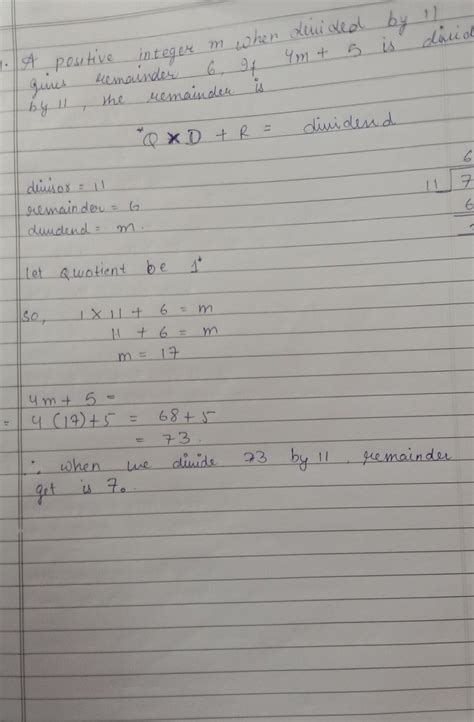 1. A positive integer m when divided by 11
gives remainder 6, If 4m + 5 is divid
by 11, the remainder is
*Q X D + R = dividend
divisor = 11
remainder = 6
dividend = m.
6
11 7
6
let Quotient be 1*
so, 1 x 11 + 6 = m
11 + 6 = m
m = 17
4m + 5 =
= 4 (17) + 5 = 68 + 5
= 73.
∴ when we divide 73 by 11, remainder
get is 7.